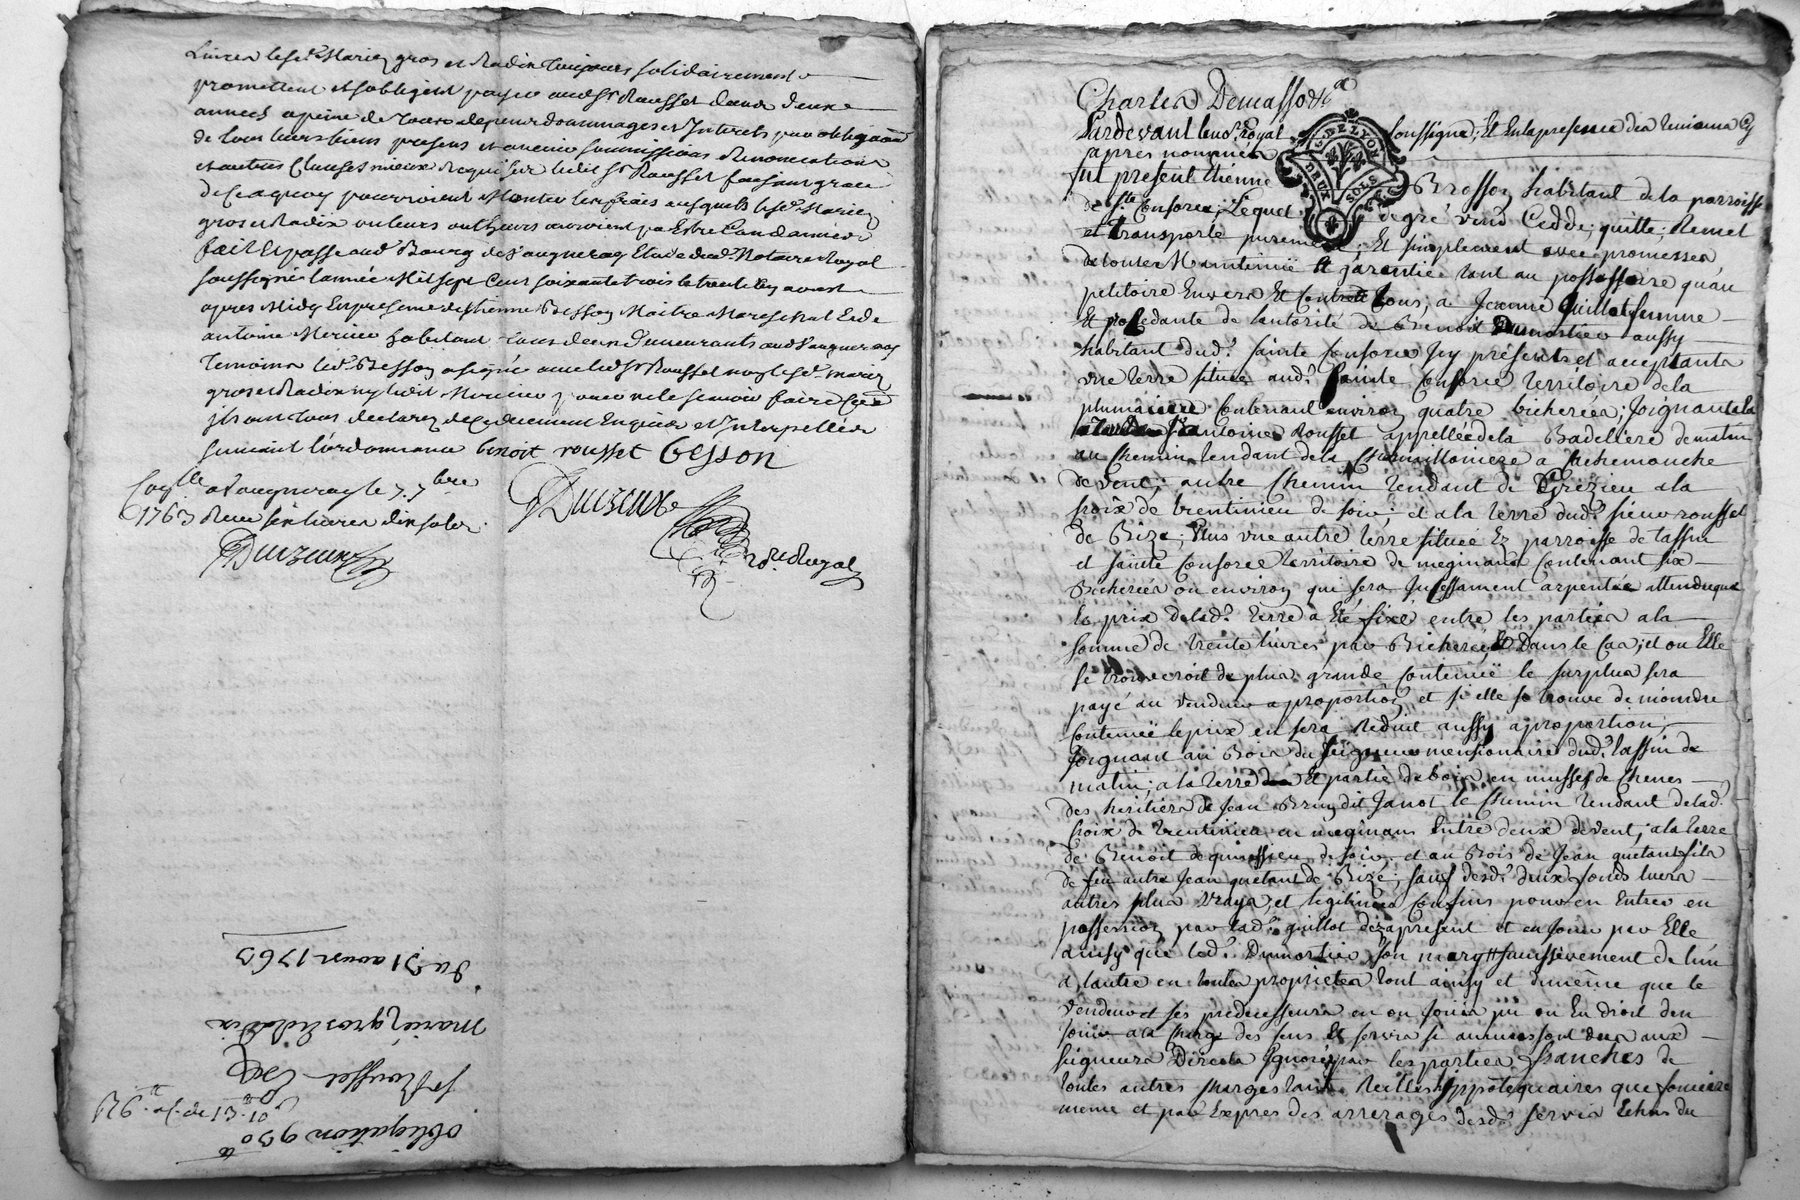 Livres lesd. Mariez gros et Radix toujours solidairement
promettent et s'obligent payer aud. Sr Rousset dans deux
années a peine de tous depens dommages et Interets par obligaon
de tous leurs biens presens et avenir soumissions Renonciations
et autres Clauses mieux Requises ledit Sr Rousset faisant grace
de Ce a quoy pourroient Monter les frais ausquels lesd. Mariez
gros et Radix ou leurs autheurs auroient pu Estre Condamnés
fait et passé aud. Bourg de Vaugneray Etude dud. Notaire Royal
soussigné l'année Mil sept Cent soixante trois le trente un aoust
apres Midy En presence d'Estienne Besson Maitre Mareschal Et de
antoine Mercier habitant tous deux demeurants aud. Vaugneray
Temoins led. Besson a signé avec led. Sr Rousset non lesd. mariez
gros et Radix ny ledit Mercier pour ne le scavoir faire Ce
ils ont tous declarez de Ce duement Enquis et Interpellés
suivant l'ordonnance benoit rousset besson
Conlle a Vaugneray le 7. 7bre
1763 Reçu six livres dix sols
Duizeux
Duizeux
nore Royal
du 31 aoust 1763
mariez gros et Radix
Sr Rousset
obligation 930
Charles Demasso
Pardevant le nore Royal soussigné, Et En la presence des temoins Cy
apres nommés
fut present Etienne Brosson habitant de la parroisse
de Ste Consorce, Lequel de gré vend Cedde, quitte, Remet
et transporte purement, Et simplement avec promesses
de toute Maintenüe Et garantie tant au possessoire qu'au
petitoire Envers Et Contre tous, a Jeanne Guillot femme
Et procedante de l'autorité de Benoit Dumortier aussy
habitant dud. sainte Consorce Icy presents et acceptants
une terre située aud. Sainte Consorce territoire de la
plumassiere Contenant environ quatre bicherées, Joignant a la
antoine Rousset appellée de la Badeliere de matin
au Chemin tendant de la a
de vent, autre Chemin tendant de Grezieu a la
Croix de trentinieu de soir, et a la terre dud. sieur rousset
de Bize; Plus une autre terre située Ez parroisse de tassin
et sainte Consorce territoire de meginand Contenant six
Bicherées ou environ qui sera Incessament arpentée attendu que
le prix de lad. terre a Eté fixé entre les parties a la
somme de trente livres par Bicherée, Et Dans le Cas, et ou Elle
se trouveroit de plus grande Contenüe le surplus sera
payé au vendeur a proportion et si elle se trouve de moindre
Contenüe le prix en sera Reduit aussy a proportion,
Joignant au Bois du Seigneur mentionaire dud. tassin de
matin, a la terre Et partie de bois en mussef de Chenes
des heritiers de Jean Brun dit Janot le Chemin tendant de lad.
Croix de trentinieu en meginand Entre deux de vent, a la terre
de Benoit de quinssieu de soir et au Bois de Jean quetant fils
de feu autre Jean quetant de Bize, sauf desd. deux fonds leurs
autres plus vrays, et legitimes Confins pour en Entrer en
possession par lad. guillot dez a present et en Jouir par Elle
ainsy que led. Dumortier son mary successivement de l'un
a l'autre en toutes proprietés tout ainsy et dememe que le
Vendeur et ses predecesseurs en on Joüis pu ou Eu droit d'en
Jouir a la Charge des Cens Et servis si aucuns sont dus aux
seigneurs Directs Ignorés par les parties, franches de
toutes autres Charges tant Reelles hyppotequaires que fonciere
meme et par Exprès des arrerages desd. servis Echus du